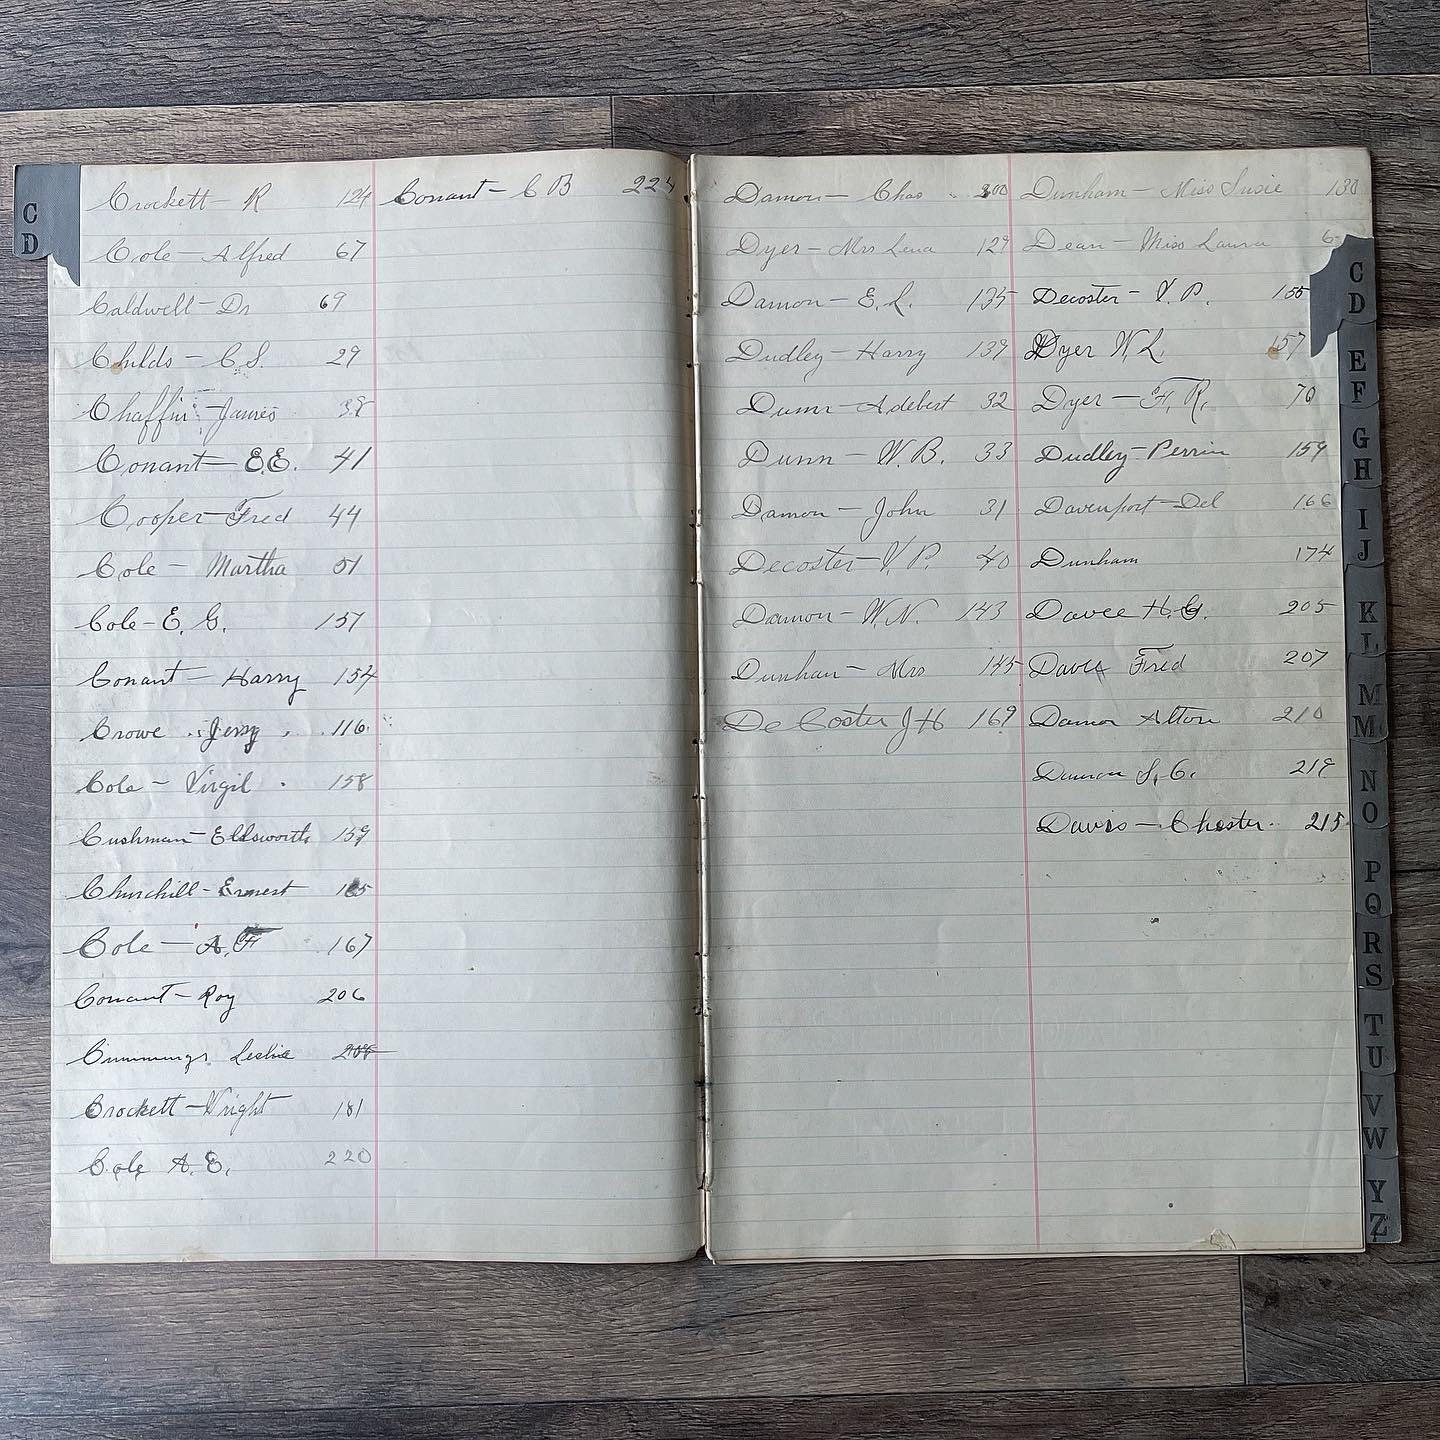 C
D
Crockett - R 124
Cole - Alfred 67
Caldwell - Dr 69
Childs - C. S. 29
Chaffin - James 38
Conant - E.E. 41
Cooper - Fred 44
Cole - Martha 51
Cole - E. G. 157
Conant - Harry 154
Crowe - Jerry 116
Cole - Virgil 158
Cushman - Elldsworth 159
Churchill - Ernest 165
Cole - A. F 167
Conant - Roy 206
Cummings Leslie
Crockett - Wright 181
Cole A. E. 220
Conant - C B 224
Damon - Chas 200
Dyer - Mrs Lena 129
Damon - E. L. 135
Dudley - Harry 139
Dunn - Adelbert 32
Dunn - W. B. 33
Damon - John 31
Decoster - V. P. 40
Damon - W. N. 143
Dunham - Mrs 145
De Coster J H 169
Dunham - Miss Susie 130
Dean - Miss Laura
Decoster - V. P. 155
Dyer W L. 157
Dyer - F. R. 70
Dudley - Perrin 159
Davenport - Del 166
Dunham 174
Davee H. G. 205
Davee Fred 207
Damon Alton 210
Damon S. G. 218
Davis - Chester. 215
C
D
E
F
G
H
I
J
K
L
M
M
N
O
P
Q
R
S
T
U
V
W
Y
Z